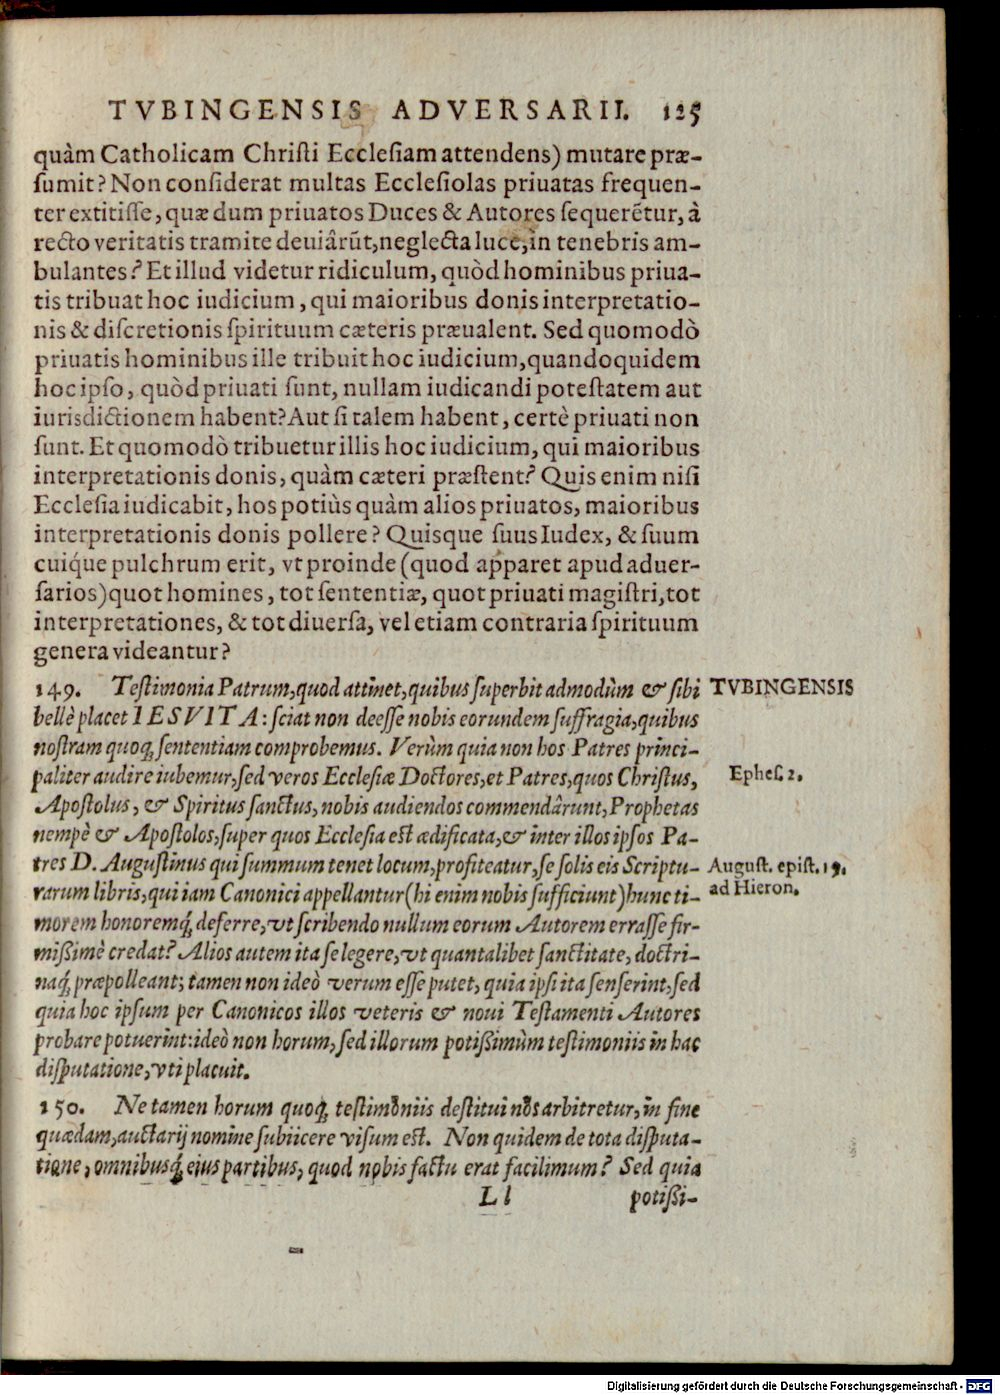 TVBINGENSIS ADVERSARII. 125
quàm Catholicam Chriſti Eccleſiam attendens) mutare præ-
ſumit? Non conſiderat multas Eccleſiolas priuatas frequen-
ter extitiſſe, quæ dum priuatos Duces & Autores ſequerẽtur, à
recto veritatis tramite deuiârũt, neglecta luce, in tenebris am-
bulantes? Et illud videtur ridiculum, quòd hominibus priua-
tis tribuat hoc iudicium, qui maioribus donis interpretatio-
nis & diſcretionis ſpirituum cæteris præualent. Sed quomodò
priuatis hominibus ille tribuit hoc iudicium, quandoquidem
hoc ipſo, quòd priuati ſunt, nullam iudicandi poteſtatem aut
iurisdictionem habent? Aut ſi talem habent, certè priuati non
ſunt. Et quomodò tribuetur illis hoc iudicium, qui maioribus
interpretationis donis, quàm cæteri præſtent? Quis enim niſi
Eccleſia iudicabit, hos potiùs quàm alios priuatos, maioribus
interpretationis donis pollere? Quisque ſuus Iudex, & ſuum
cuiq́ue pulchrum erit, vt proinde (quod apparet apud aduer-
ſarios) quot homines, tot ſententiæ, quot priuati magiſtri, tot
interpretationes, & tot diuerſa, vel etiam contraria ſpirituum
genera videantur?
149. Teſtimonia Patrum, quod attinet, quibus ſuperbit admodùm & ſibi
TVBINGENSIS
bellè placet IESVITA: ſciat non deeſſe nobis eorundem ſuffragia, quibus
noſtram quoq; ſententiam comprobemus. Verùm quia non hos Patres princi-
paliter audire iubemur, ſed veros Eccleſiæ Doctores, et Patres, quos Chriſtus,
Epheſ. 2.
Apoſtolus, & Spiritus ſanctus, nobis audiendos commendârunt, Prophetas
nempè & Apoſtolos, ſuper quos Eccleſia eſt ædificata, & inter illos ipſos Pa-
tres D. Auguſtinus qui ſummum tenet locum, profiteatur, ſe ſolis eis Scriptu-
Auguſt. epiſt. 19.
rarum libris, qui iam Canonici appellantur (hi enim nobis ſufficiunt) hunc ti-
ad Hieron.
morem honoremq́; deferre, vt ſcribendo nullum eorum Autorem erraſſe fir-
mißimè credat? Alios autem ita ſe legere, vt quantalibet ſanctitate, doctri-
naq́; præpolleant; tamen non ideò verum eſſe putet, quia ipſi ita ſenſerint, ſed
quia hoc ipſum per Canonicos illos veteris & noui Teſtamenti Autores
probare potuerint: ideò non horum, ſed illorum potißimùm teſtimoniis in hac
diſputatione, vti placuit.
150. Ne tamen horum quoq; teſtimoniis deſtitui nos arbitretur, in fine
quædam, auctarij nomine ſubiicere viſum eſt. Non quidem de tota diſputa-
tione, omnibusq́; eius partibus, quod nobis factu erat facilimum? Sed quia
Ll potißi-
Digitalisierung gefördert durch die Deutsche Forschungsgemeinschaft - DFG